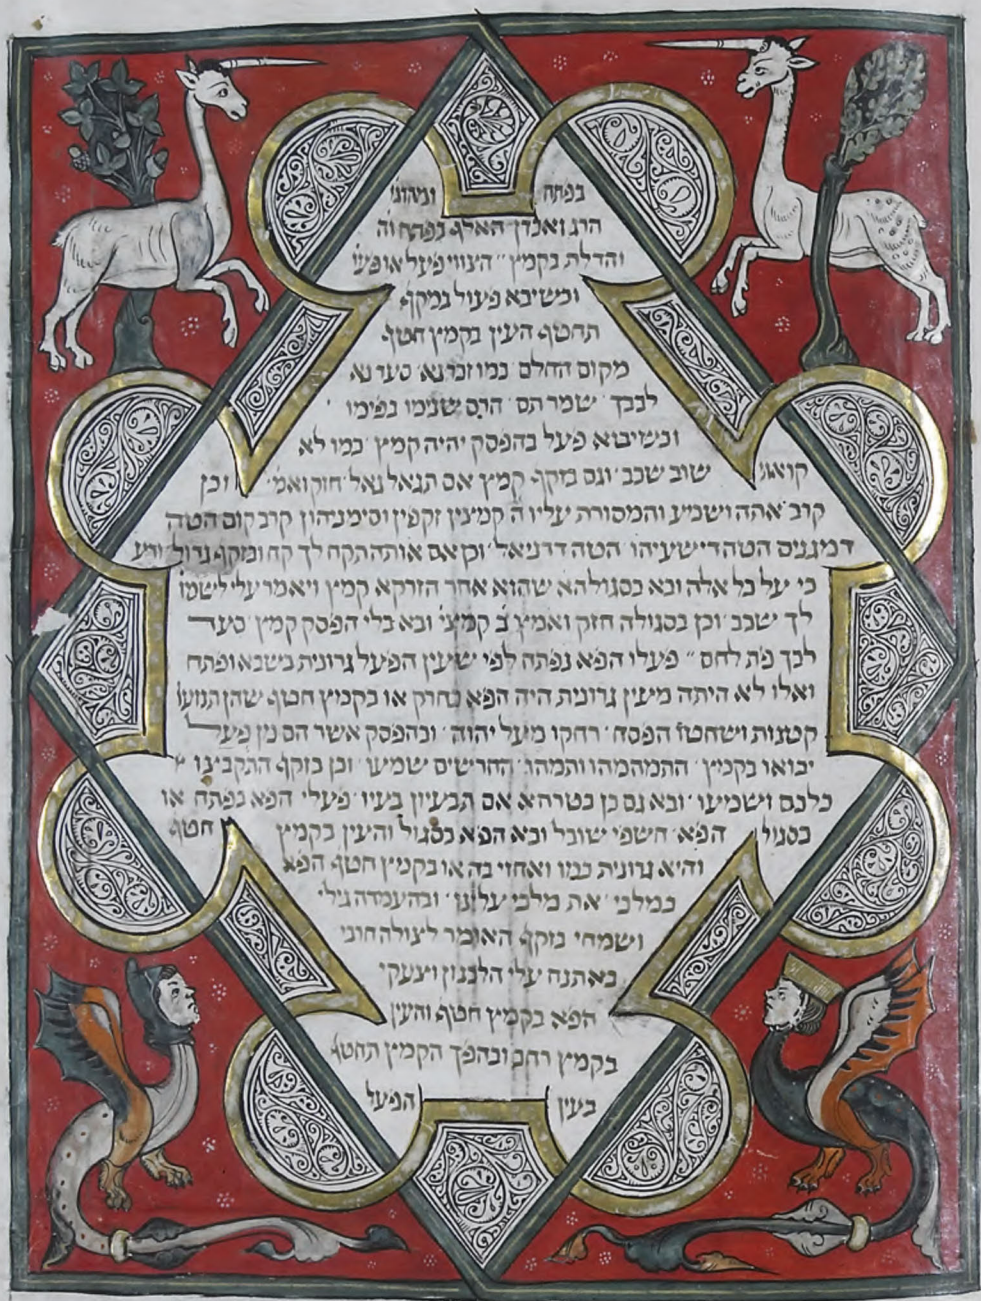 בפתח ומהגו
הרג ואבדן האלף בפתח וה
והדלת בקמץ הצווי פעל או פעל
וכשיבא פעול במקף
תחטף העין בקמץ חטף
מקום החלם כמו זכר נא סעד נא
לבבך שמר תם הרס שנימו בפימו
וכשיבוא פעל בהפסק יהיה קמץ כמו לא
שוב שכב וגם בזקף קמץ אם תגאל גאל חזק ואמ וכן
קרב אתה ושמע והמסורת עליו ה קמצין זקפין וסימניהון קרב קום הטה
הטה דדניאל וכן אם אותה תקח לך קח ובזקף גדול ודע
כי על כל אלה ובא בסגולה שהוא אחר הזרקא קמץ ויאמר עלי לשמו
לך שכב וכן בסגולה חזק ואמץ ב קמצי ובא בלי הפסק קמץ סעד
לבך פת לחם פעלו הפא נפתה לפי שעין הפעל גרונית בשבא ופתח
ואלו לא היתה העין גרונית היה הפא בחרק או בקמץ חטף שהן תנועו
קטנות ושחטו הפסח רחקו מעל יהוה ובהפסק אשר הם מן פעל
יבואו בקמץ התמהמהו ותמהו החרשים שמעו וכן בזקף התקבצו
כלכם ושמעו ובא גם כן בטרחא אם תבעיון בעיו פעלי הפא בפתח או
בסגול הפא חשפי שובל ובא הפא בסגול והעין בקמץ חטף
והיא גרונית כמו ואחזי בה או בקמץ חטף הפא
כמלכי את מלכי עלינו ובהעמדה גילי
ושמחי בזקף האומר לצולה חרבי
באתנח עלי הלבנון וצעקי
הפא בקמץ חטף והעין
בקמץ רחב ובהפך הקמץ תחטף
בעין הפעל